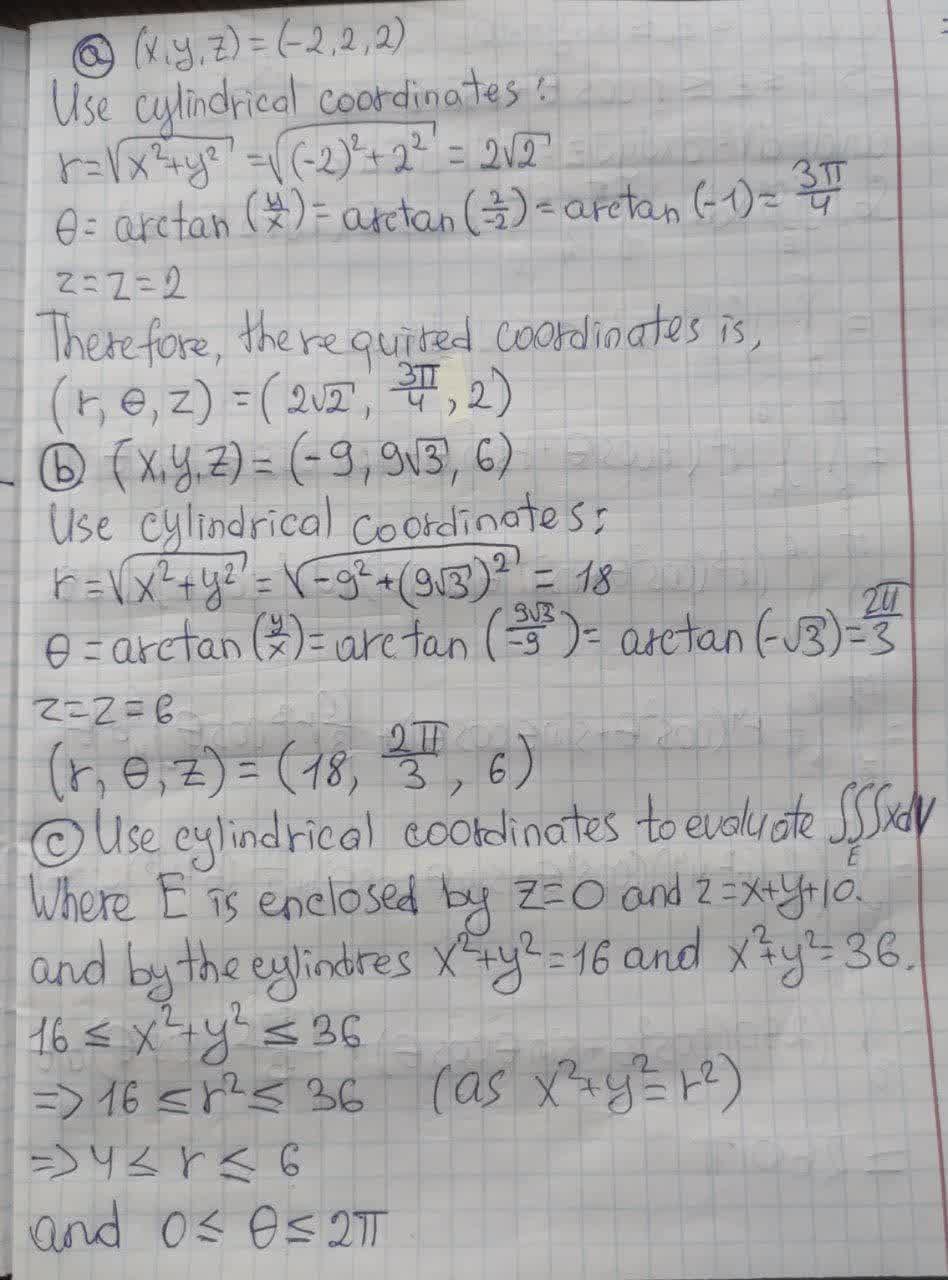 ⓐ (x,y,z)=(-2,2,2)
Use cylindrical coordinates:
r=√(x²+y²) =√((-2)²+2²) = 2√2
θ= arctan (y/x)= arctan(2/-2)= arctan (-1)= 3π/4
z=z=2
Therefore, the required coordinates is,
(r, θ, z) = (2√2, 3π/4, 2)
ⓑ (x,y,z)= (-9, 9√3, 6)
Use cylindrical coordinates:
r=√(x²+y²)=√(-9²+(9√3)²) = 18
θ=arctan(y/x)=arctan (9√3/-9)= arctan(-√3)=2π/3
z=z=6
(r, θ, z)= (18, 2π/3, 6)
ⓒ Use cylindrical coordinates to evaluate ∭_E xdV
Where E is enclosed by z=0 and z=x+y+10.
and by the cylindres x²+y²=16 and x²+y²=36.
16 ≤ x²+y² ≤ 36
=> 16 ≤ r² ≤ 36 (as x²+y²=r²)
=> 4 ≤ r ≤ 6
and 0 ≤ θ ≤ 2π